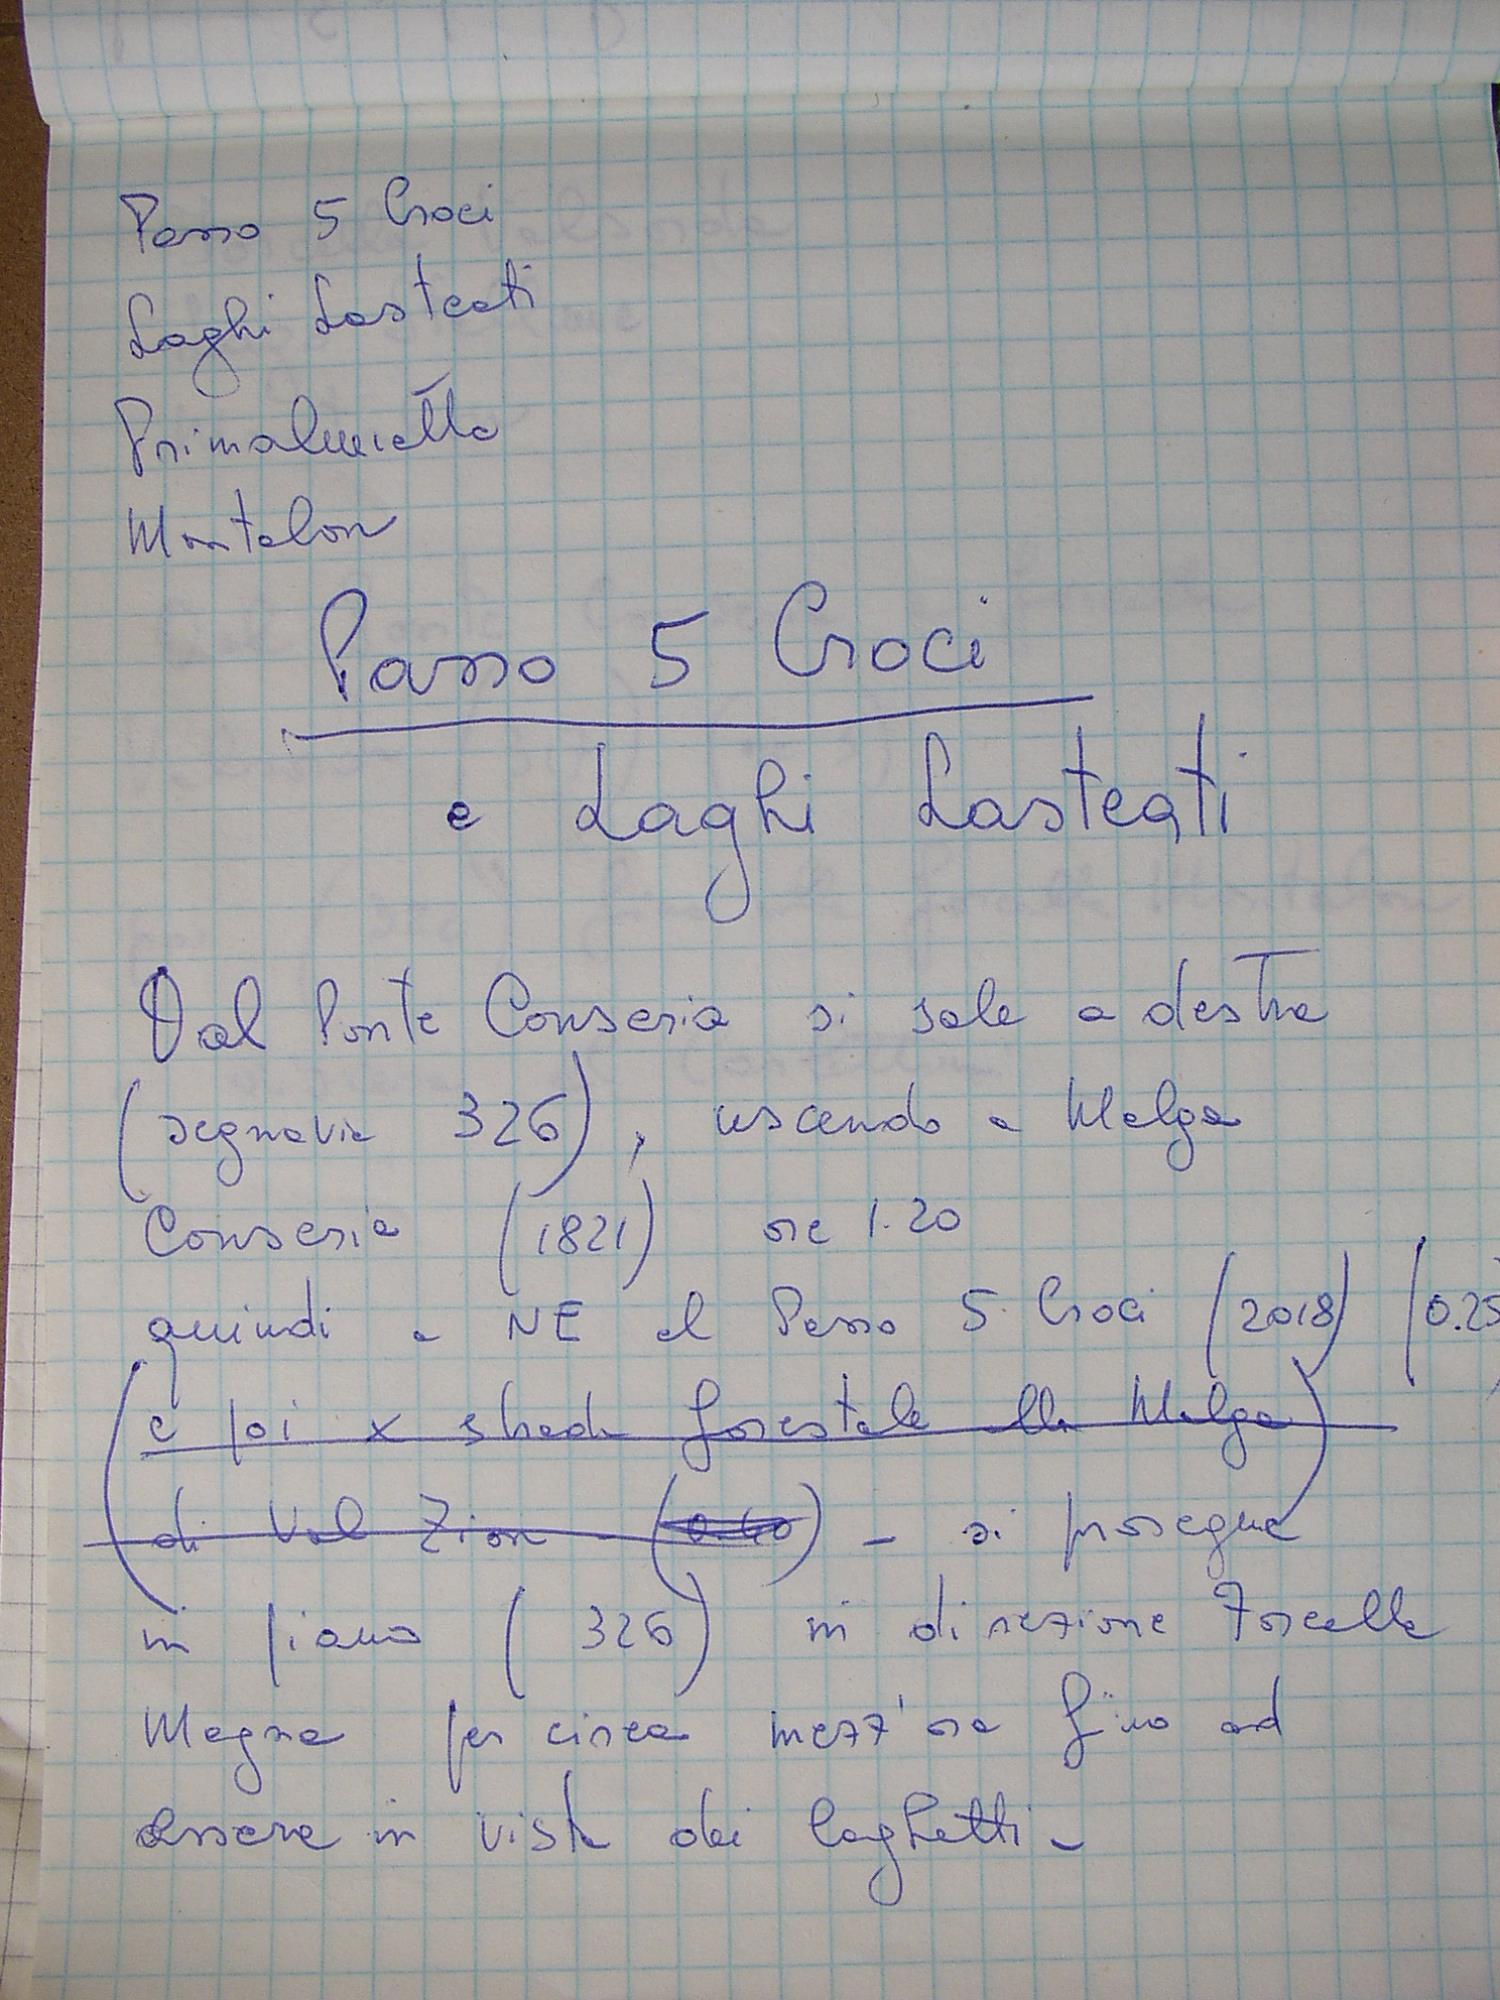 Passo 5 Croci
Laghi Lasteati
Primaluneta
Montalon
Passo 5 Croci
e Laghi Lasteati
Dal Ponte Conseria si sale a destra
(segnavia 326), uscendo a Malga
Conseria (1821) ore 1.20
quindi a NE al Passo 5 Croci (2018) (0.25
e poi x strada forestale alla Malga
di Val Zion - (0.40) - si prosegue
in piano (326) in direzione Forcella
Magna per circa mezz'ora fino ad
essere in vista dei laghetti -